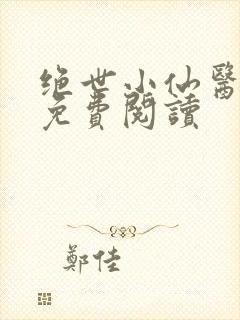 绝世小仙醫
免費閱讀
鄭佳